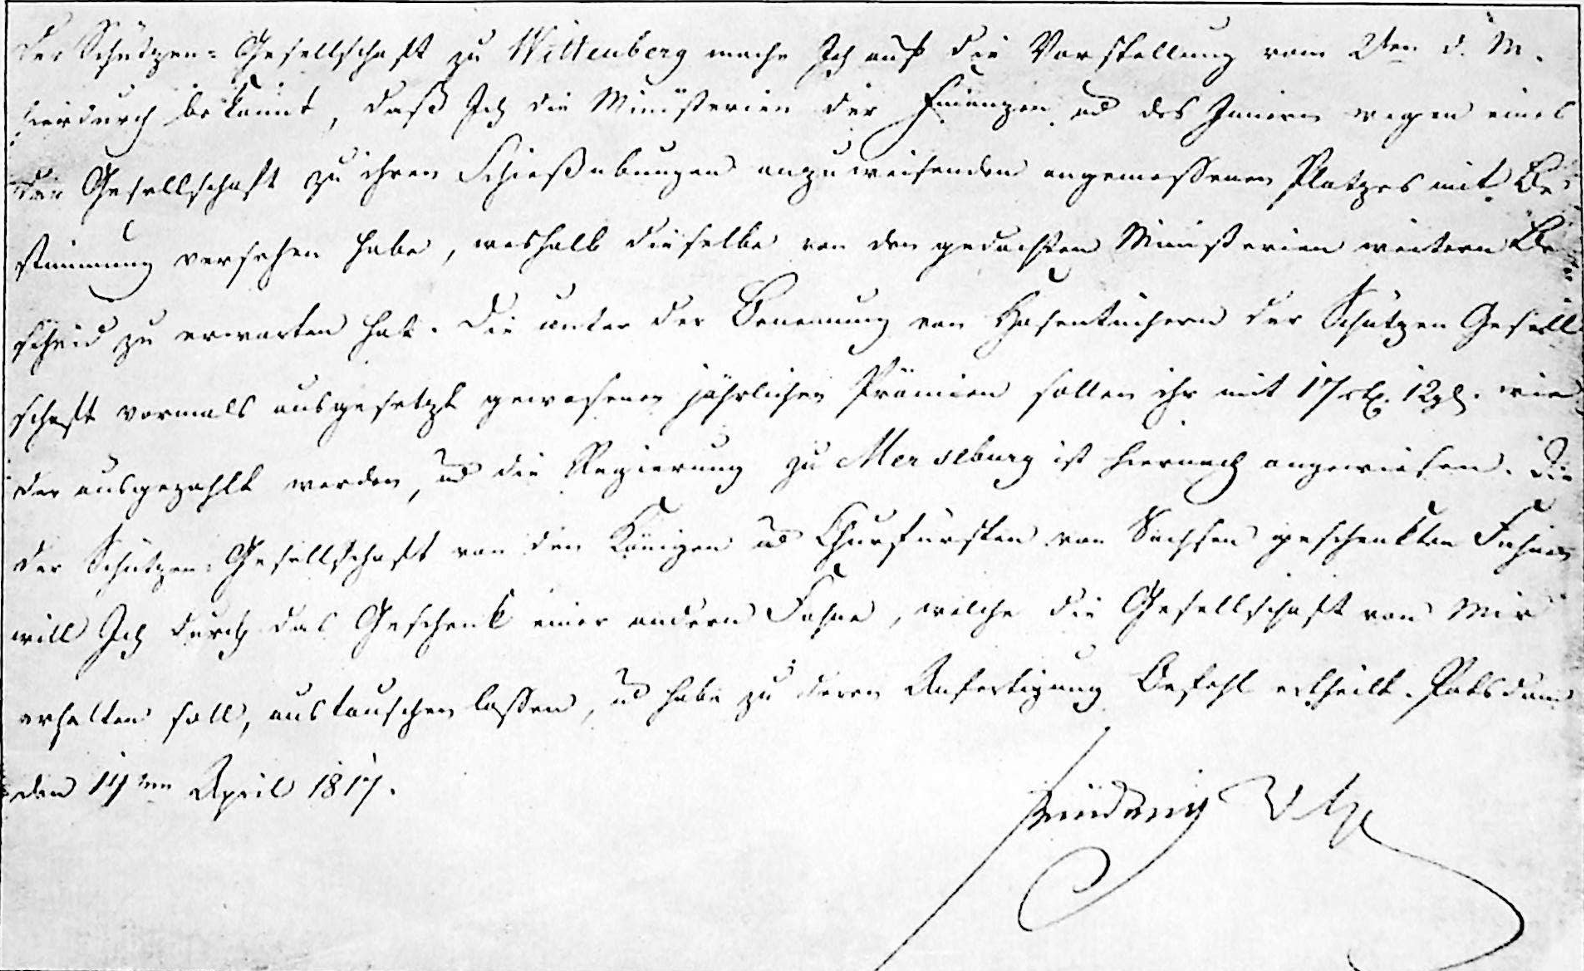 Der Schützen-Gesellschaft zu Wittenberg mache Ich auf die Vorstellung vom 2ten d. M.
hierdurch bekannt, daß Ich die Ministerien der Finanzen und des Innern wegen eines
der Gesellschaft zu ihren Schießübungen anzuweisenden angemessenen Platzes mit Be-
stimmung versehen habe, weshalb dieselbe von den gedachten Ministerien weitern Be-
scheid zu erwarten hat. Die unter der Benennung von Hosentüchern der Schützen Gesell
schaft vormals ausgesetzt gewesenen jährlichen Prämien sollen ihr mit 17 rtl. 12 gl. wie
der ausgezahlt werden, und die Regierung zu Merseburg ist hiernach angewiesen. Die
der Schützen-Gesellschaft von den Königen und Churfürsten von Sachsen geschenkten Fahnen
will Ich durch das Geschenk einer andern Fahne, welche die Gesellschaft von Mir
erhalten soll, austauschen lassen, und habe zu deren Anfertigung Befehl ertheilt. Potsdam
den April 1817.
Friedrich Wilhelm